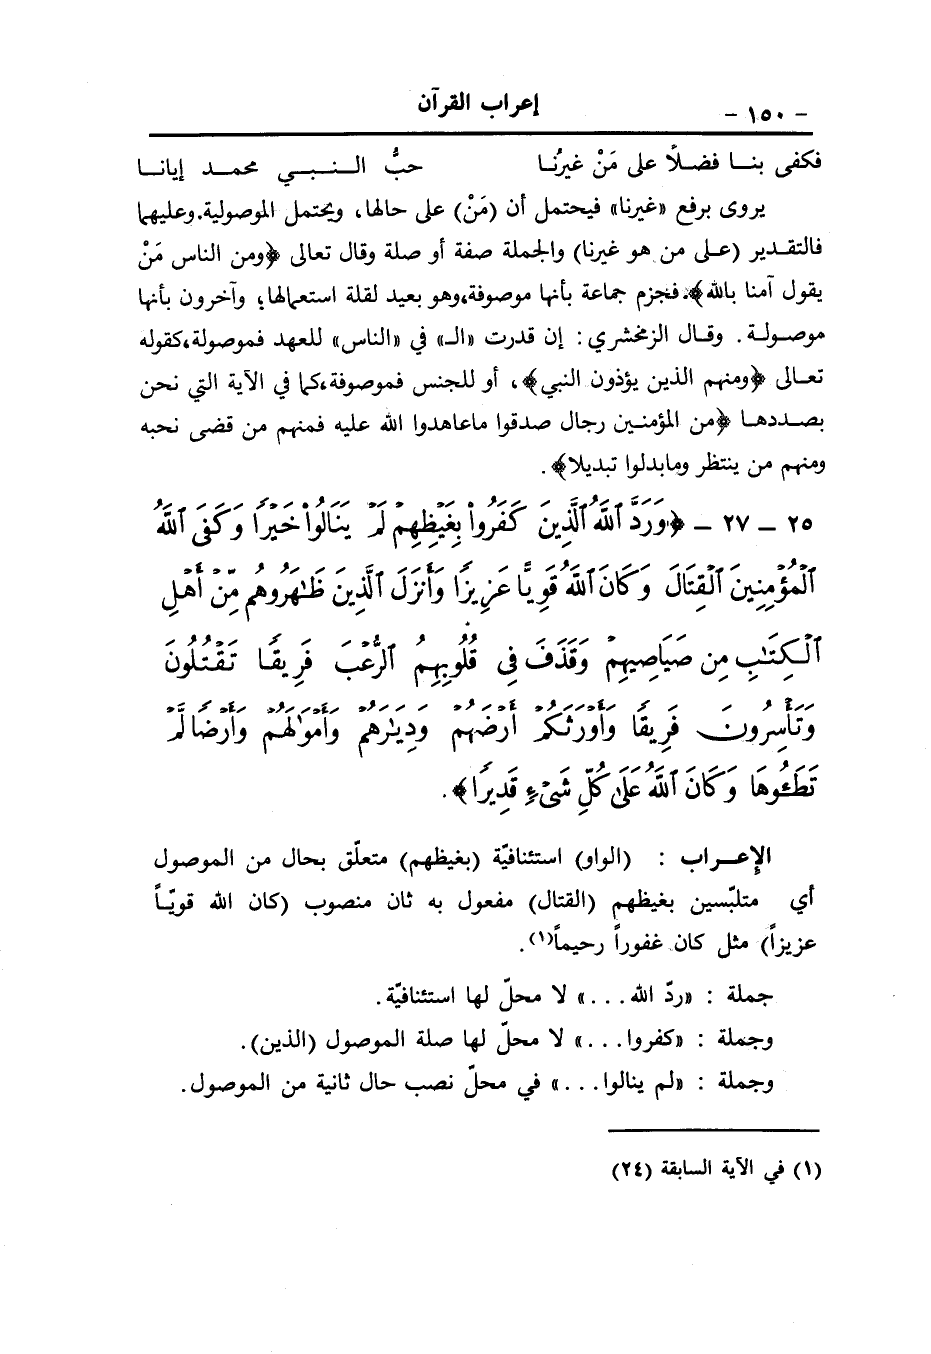 - ١٥٠ - إعراب القرآن
فكفى بنا فضلاً على مَنْ غيرُنا حبُّ النبي محمد إيانا
يروى برفع «غيرنا» فيحتمل أن (مَنْ) على حالها، ويحتمل الموصولية. وعليهما
فالتقدير (على من هو غيرنا) والجملة صفة أو صلة وقال تعالى ﴿ومن الناس مَنْ
يقول آمنا بالله﴾. فجزم جماعة بأنها موصوفة، وهو بعيد لقلة استعمالها؛ وآخرون بأنها
موصولة. وقال الزمخشري: إن قدرت «الـ» في «الناس» للعهد فموصولة، كقوله
تعالى ﴿ومنهم الذين يؤذون النبي﴾، أو للجنس فموصوفة، كما في الآية التي نحن
بصددها ﴿من المؤمنين رجال صدقوا ماعاهدوا الله عليه فمنهم من قضى نحبه
ومنهم من ينتظر ومابدلوا تبديلا﴾.
٢٥ - ٢٧ - ﴿وَرَدَّ ٱللَّهُ ٱلَّذِينَ كَفَرُواْ بِغَيْظِهِمْ لَمْ يَنَالُواْ خَيْرًا وَكَفَى ٱللَّهُ
ٱلْمُؤْمِنِينَ ٱلْقِتَالَ وَكَانَ ٱللَّهُ قَوِيًّا عَزِيزًا وَأَنزَلَ ٱلَّذِينَ ظَٰهَرُوهُم مِّنْ أَهْلِ
ٱلْكِتَٰبِ مِن صَيَاصِيهِمْ وَقَذَفَ فِي قُلُوبِهِمُ ٱلرُّعْبَ فَرِيقًا تَقْتُلُونَ
وَتَأْسِرُونَ فَرِيقًا وَأَوْرَثَكُمْ أَرْضَهُمْ وَدِيَٰرَهُمْ وَأَمْوَٰلَهُمْ وَأَرْضًا لَّمْ
تَطَـُٔوهَا وَكَانَ ٱللَّهُ عَلَىٰ كُلِّ شَىْءٍ قَدِيرًا﴾.
الإعراب : (الواو) استئنافيّة (بغيظهم) متعلّق بحال من الموصول
أي متلبّسين بغيظهم (القتال) مفعول به ثان منصوب (كان الله قويّاً
عزيزاً) مثل كان غفوراً رحيماً(١).
جملة : «ردّ الله...» لا محلّ لها استئنافيّة.
وجملة : «كفروا...» لا محلّ لها صلة الموصول (الذين).
وجملة : «لم ينالوا...» في محلّ نصب حال ثانية من الموصول.
(١) في الآية السابقة (٢٤)